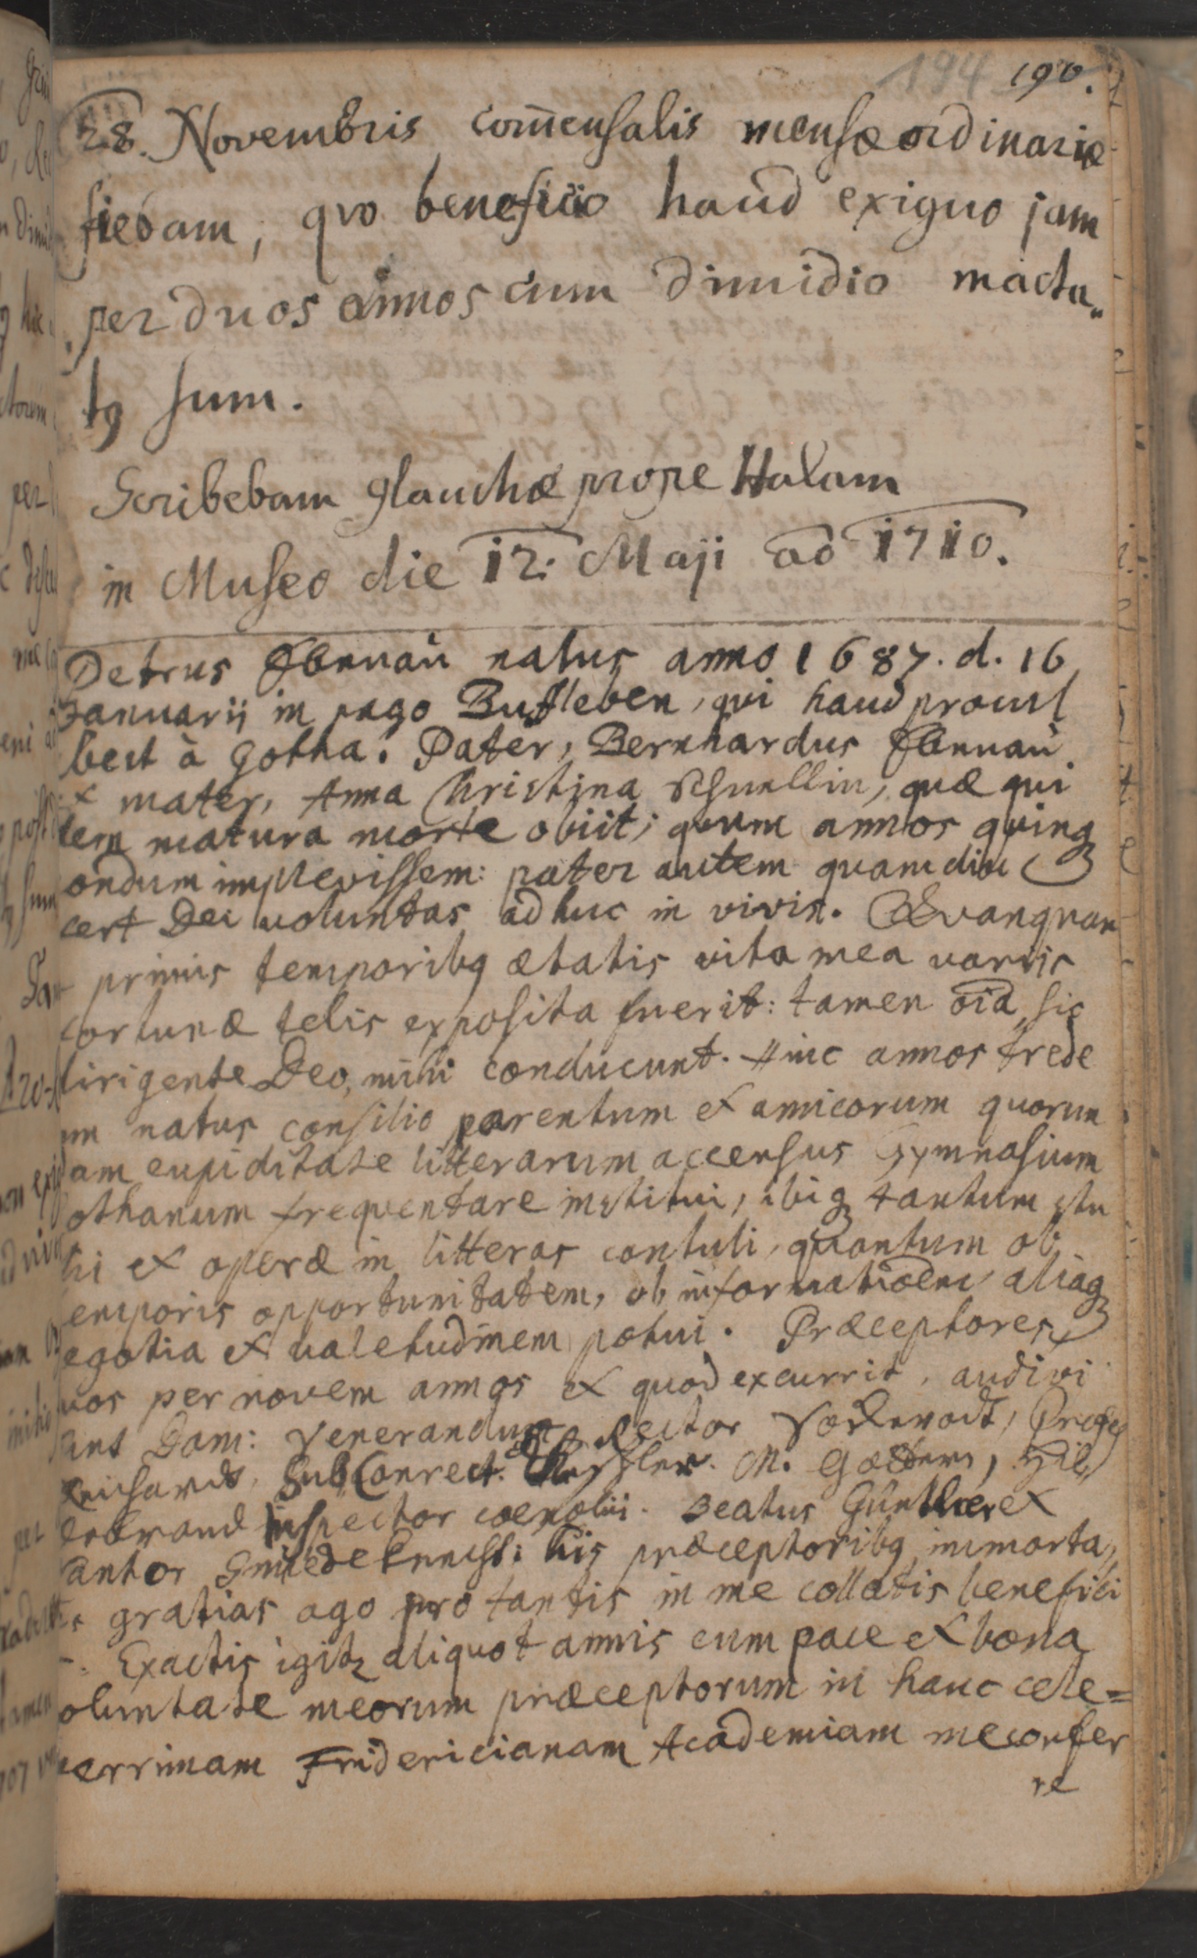 194 190.
28. Novembris com̄ensalis mensæ ordinariæ
fiebam, qvo beneficio haud exiguo jam
per duos annos cum dimidio macta„
tꝰ sum.
Scribebam Glauchæ prope Halam
in Museo die 12. Maji ao 1710.
Petrus Ebenau natus anno 1687. d. 16
Januarij in pago Bufleben, qui haud procul
best à Gotha. Pater, Bernhardus Ebenau
& mater, Anna Christina Schnellin, quæ qui
dem matura morte obiit; quum annos quinqꝫ
ondum implevissem: pater autem quamdiu
cert Dei voluntas adhuc in vivis. Qvanquam
primis temporibꝫ ætatis vita mea variis
fortunæ telis exposita fuerit: tamen oīa, sic
dirigente Deo, mihi conducunt. Hinc annos trede
im natus consilio parentum & amicorum quorun
am cupiditate litterarum accensus Gymnasium
othanum freqventare institui, ibiqꝫ tantum stu
hi & operæ in litteras contuli, quantum ob
temporis opportunitatem, ob informationem aliaqꝫ
egotia & valetudinem potui. Præceptores,
uos per novem annos & quod excurrit, audivi
unt Dom: Venerandus Rector Vockerodt,
SubConrect. Kessler. M.
Inspector coenobii. Beatus Günther &
antor his præceptoribꝫ immorta„
s gratias ago pro tantis in me collatis benefici
s. Exactis igitꝫ aliquot annis cum pace & bona
oluntate meorum præceptorum in hanc cele=
errimam Fridericianam Academiam me confer
re